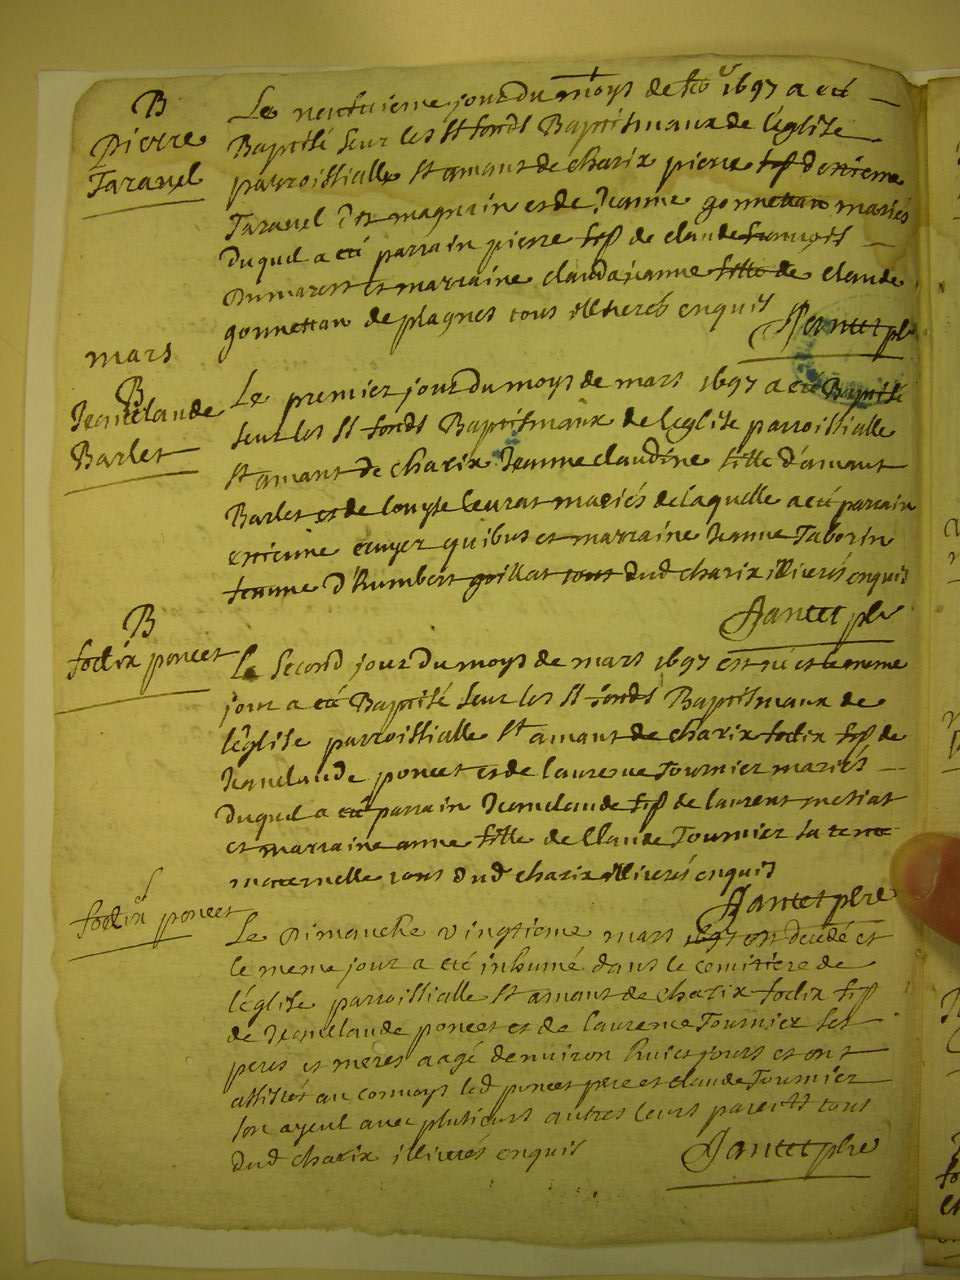 B
pierre
Taravel
Le neufvieme jour du moys de feb 1697 a eté
Baptisé seur les St fonds Baptismaux de leglise
parroissialle St amant de charix pierre fils d'estienne
Taravel dit magnain et de Jeanne gonnettan mariés
duquel a eté parrain pierre fils de claude françois
Dumarest et marraine claudajeanne fille de claude
gonnettan de plagnes tous illiterés enquis
Jantet pbr
mars
B
Jeanclaude
Barlet
Le premier jour du moys de mars 1697 a eté Baptisé
seur les St fonds Baptismaux de leglise parroissialle
St amant de charix Jeanne claudine fille d'amant
Barlet et de louyse leurat mariés de laquelle a eté parrain
estienne quibus et marraine Jeanne Taborin
femme d'humbert goillat tous dud charix illiterés enquis
Jantet pbr
B
foelix poncet
Le second jour du moys de mars 1697 est né et le meme
jour a eté Baptisé seur les St fonds Baptismaux de
léglise parroissialle St amant de charix foelix fils de
Jeanclaude poncet et de laurence Tournier mariés
duquel a eté parrain Jeanclaude fils de laurent
et marraine anne fille de Claude Tournier sa tente
maternelle tous dud charix illiterés enquis
Jantet pbre
foelix poncet
Le Dimanche vingtieme mars 1697 est decedé et
le meme jour a eté inhumé dans le cemitiere de
léglise parroissialle St amant de charix foelix fils
de Jeanclaude poncet et de laurence Tournier ses
peres et meres aagé denuiron huict jours et ont
assistés au convoys led poncet pere et claude Tournier
son ayeul avec plusieurs autres leurs parents tous
dud charix illiterés enquis
Jantet pbre